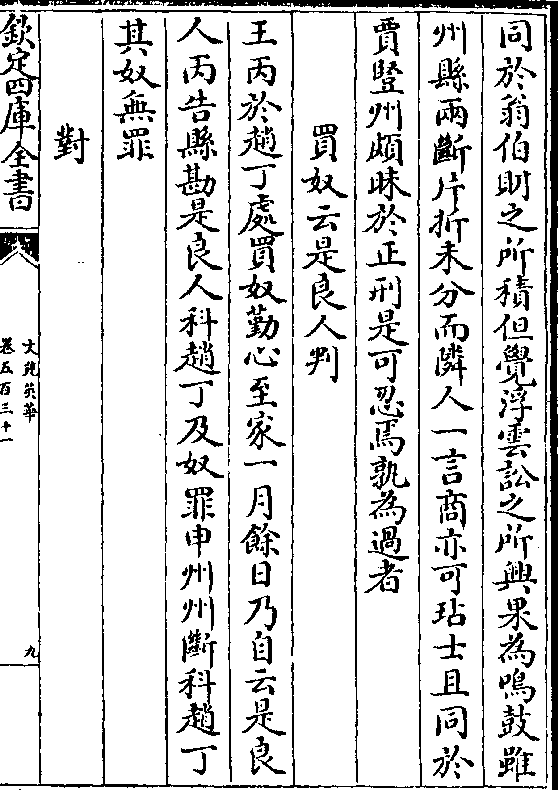 同於翁伯則之所積但覺浮雲訟之所興果為鳴鼓雖
州縣兩斷片折未分而隣人一言商亦可玷士且同於
賈豎州頗昧於正刑是可忍焉孰為過者
買奴云是良人判
王丙於趙丁處買奴勤心至家一月餘日乃自云是良
人丙告縣勘是良人科趙丁及奴罪申州州斷科趙丁
其奴無罪
對
欽定四庫全書
文苑英華
卷五百三十一
九